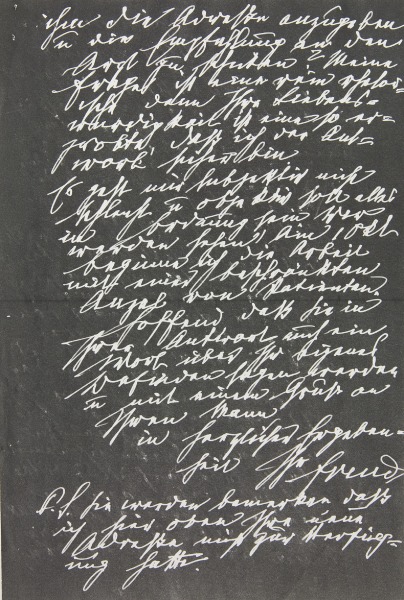 ihm die Adresse anzugeben
u die Empfehlung an den
Arzt zu senden? Meine
Frage ist eine rein rhetor-
ische denn Ihre Liebens-
würdigkeit ist eine so er-
probte, daß ich der Ant-
wort sicher bin.
Es geht mir subjektiv nicht
schlecht u objektiv soll alles
in Ordnung sein. Wir
werden sehen. Am 1 Okt
beginne ich die Arbeit
mit einer beschränkten
Anzahl von Patienten
Hoffend daß Sie in
Ihrer Antwort auch ein
Wort über Ihr eigenes
Befinden sagen werden
u mit einem Gruß an
Ihren Mann
in herzlicher Ergeben-
heit Ihr Freud
P.S. Sie werden bemerken daß
ich hier oben Ihre neue
Adresse nicht zur Verfüg-
ung hatte.